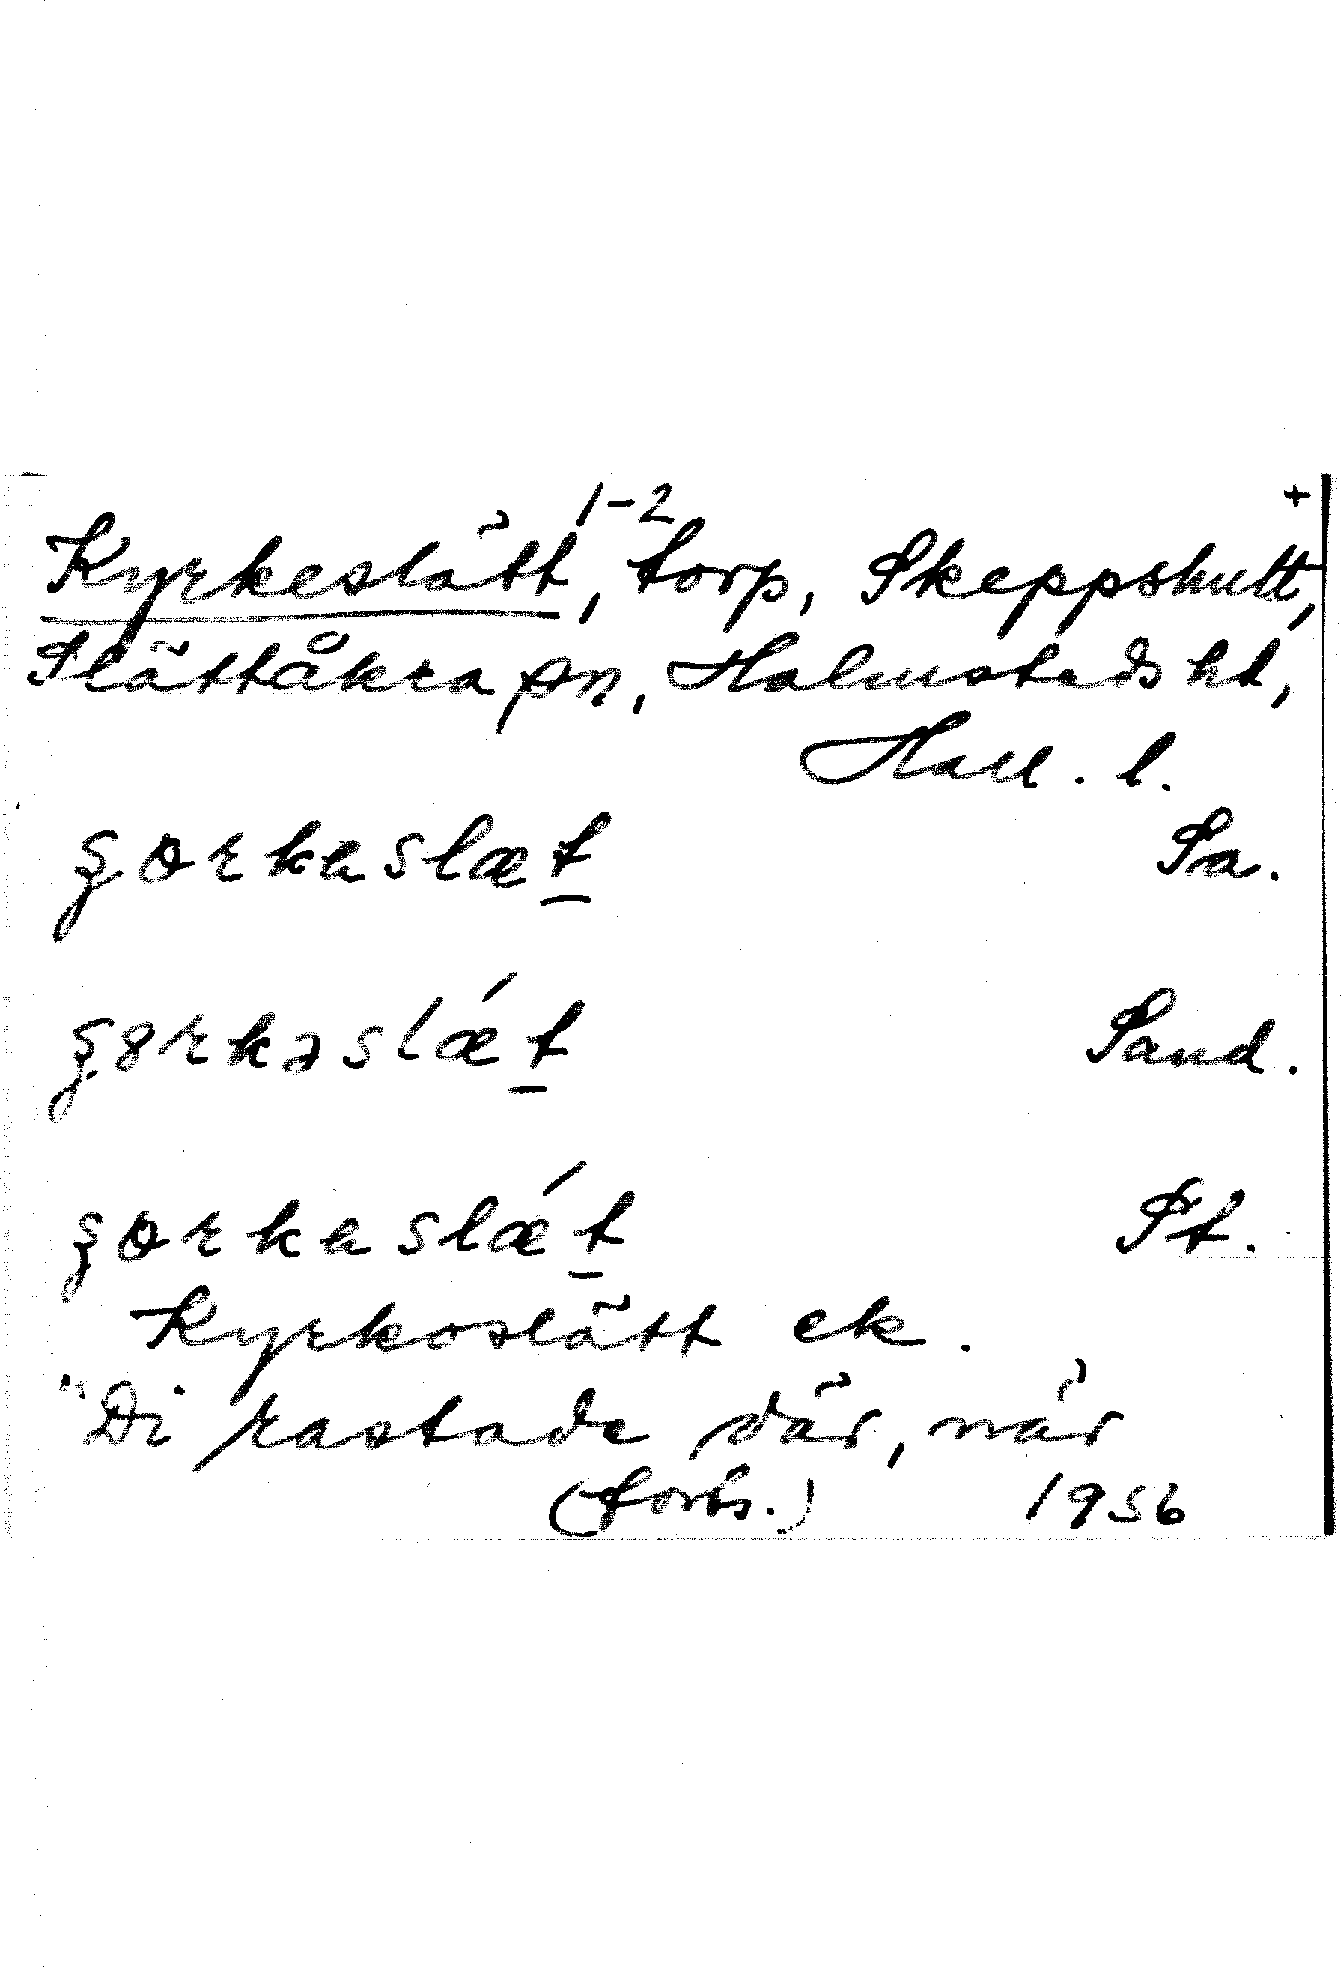 1-2 +
Kyrkeslätt, torp, Skeppshult,
Slättåkra sn, Halmstads hd,
Hall. l.
Sa.
Sand.
St.
Kyrkoslätt ek.
"Di rastade där, när
(forts.) 1956